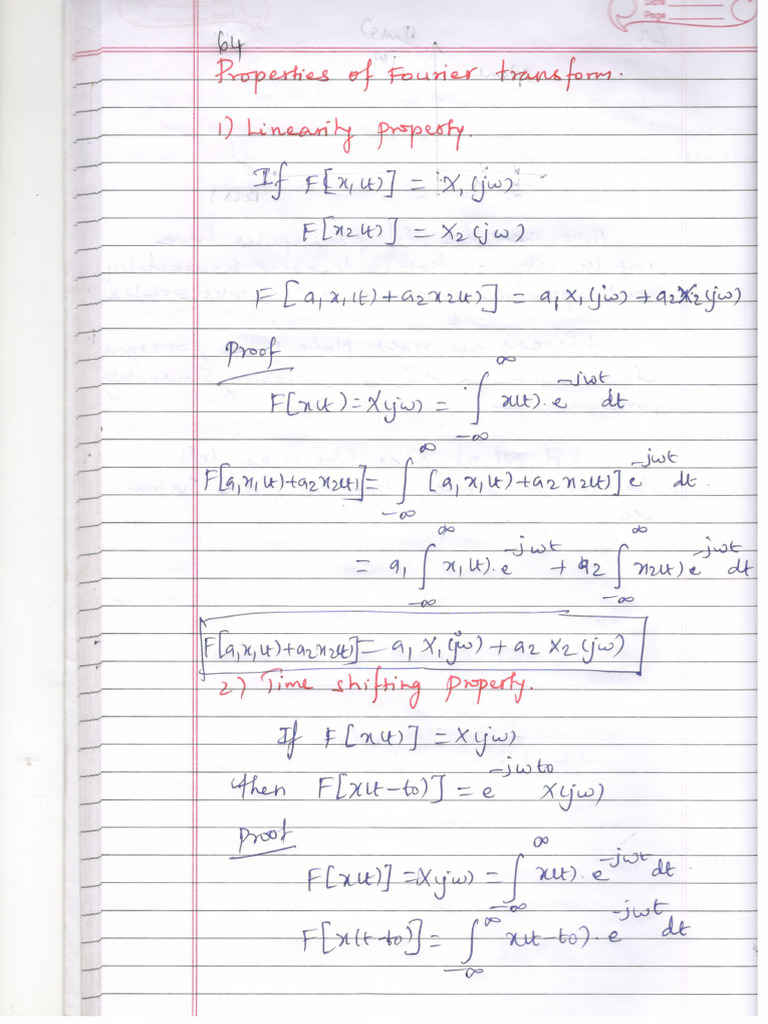 Date
Page
64
Properties of Fourier transform.
1) Linearity property.
If F[x₁(t)] = X₁(jω)
F[x₂(t)] = X₂(jω)
F[a₁x₁(t)+a₂x₂(t)] = a₁X₁(jω)+a₂X₂(jω)
Proof
F[x(t)=X(jω) = ∫_{-∞}^{∞} x(t).e^{-jωt} dt
F[a₁x₁(t)+a₂x₂(t)]= ∫_{-∞}^{∞} [a₁x₁(t)+a₂x₂(t)] e^{-jωt} dt.
= a₁ ∫_{-∞}^{∞} x₁(t).e^{-jωt} + a₂ ∫_{-∞}^{∞} x₂(t) e^{-jωt} dt
F[a₁x₁(t)+a₂x₂(t)]= a₁X₁(jω) + a₂X₂(jω)
2) Time shifting property.
If F[x(t)] = X(jω)
then F[x(t-t₀)] = e^{-jωt₀} X(jω)
Proof
F[x(t)] = X(jω) = ∫_{-∞}^{∞} x(t).e^{-jωt} dt
F[x(t-t₀)] = ∫_{-∞}^{∞} x(t-t₀).e^{-jωt} dt